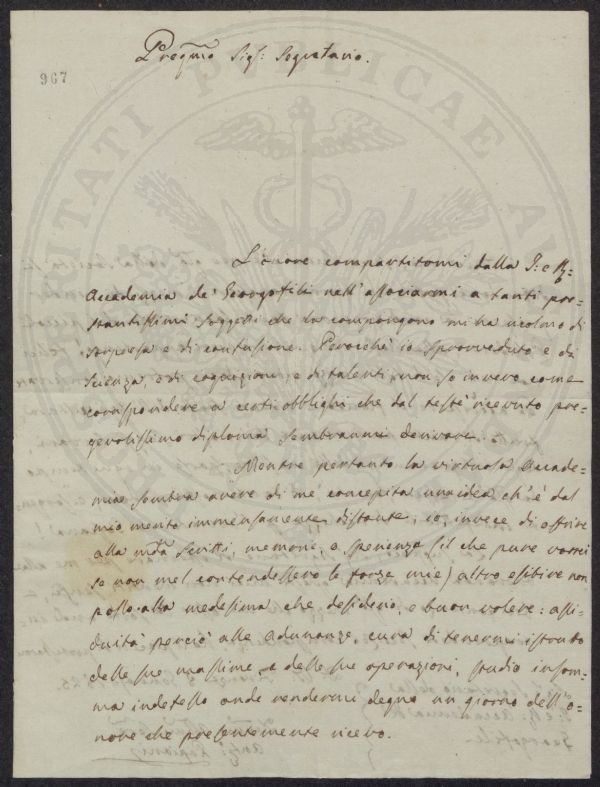 Pregmo Sigr: Segretario.
967
L'onore compartitomi dalla I: e R:
Accademia de' Georgofili nell'associarmi a tanti pre-
stantissimi soggetti che la compongono mi ha ricolmo di
sorpresa e di confusione. Perocchè io sprovveduto e di
scienza, e di cognizioni, e di talenti, non so invero come
corrispondere a certi obblighi che dal testè ricevuto pre-
gevolissimo diploma sembranmi derivare.
Mentre pertanto la virtuosa Accade-
mia sembra avere di me concepita una idea ch'è dal
mio merito immensamente distante, io, invece di offrire
alla mda scritti, memorie, o sperienze (il che pure vorrei
se non mel contendessero le forze mie) altro esibire non
posso alla medesima che desiderio, e buon volere: assi-
duità perciò alle adunanze, cura di tenermi istruito
delle sue massime, e delle sue operazioni, studio insom-
ma indefesso onde rendermi degno un giorno dell'o-
nore che presentemente ricevo.
PROSPERITATI PUBLICAE AU